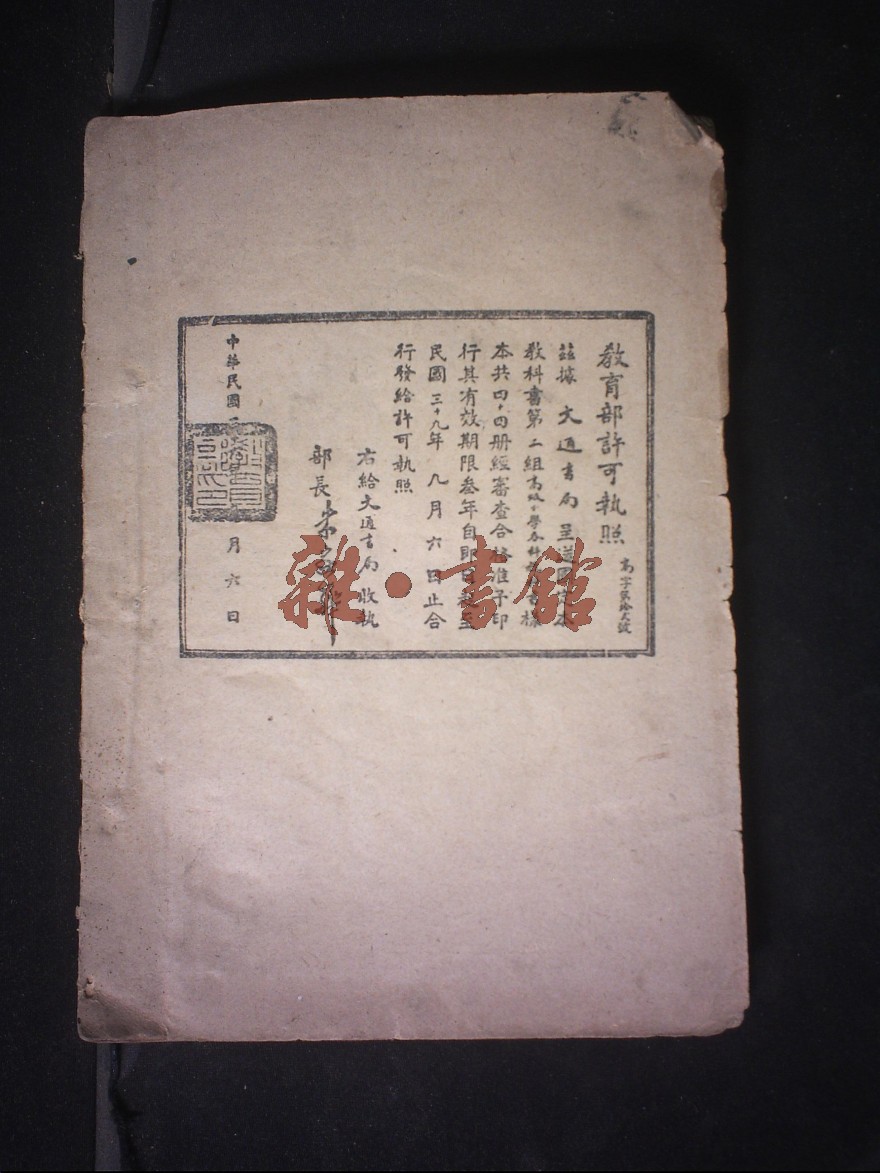 教育部許可執照
高字第拾式號
茲據 文通書局 呈送國定本
教科書第二組高級小學各科教科書樣
本共四十四冊經審查合格准予印
行其有效期限叁年自即日起至
民國三十九年九月六日止合
行發給許可執照
右給文通書局 收執
部長朱家驊
中華民國 月六日
雜·書館